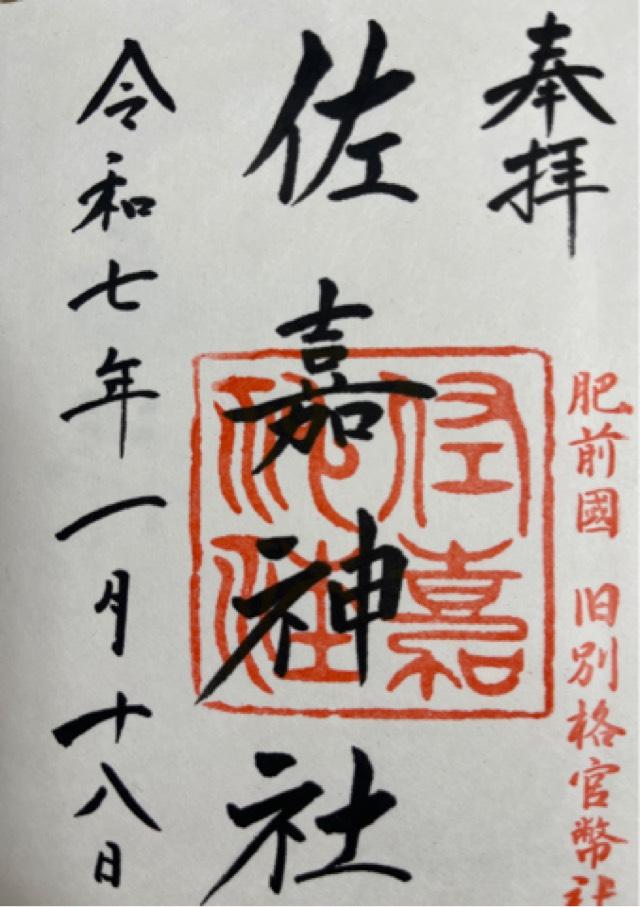 奉拝
肥前國 旧別格官幣社
佐嘉神社
佐嘉神社
令和七年一月十八日